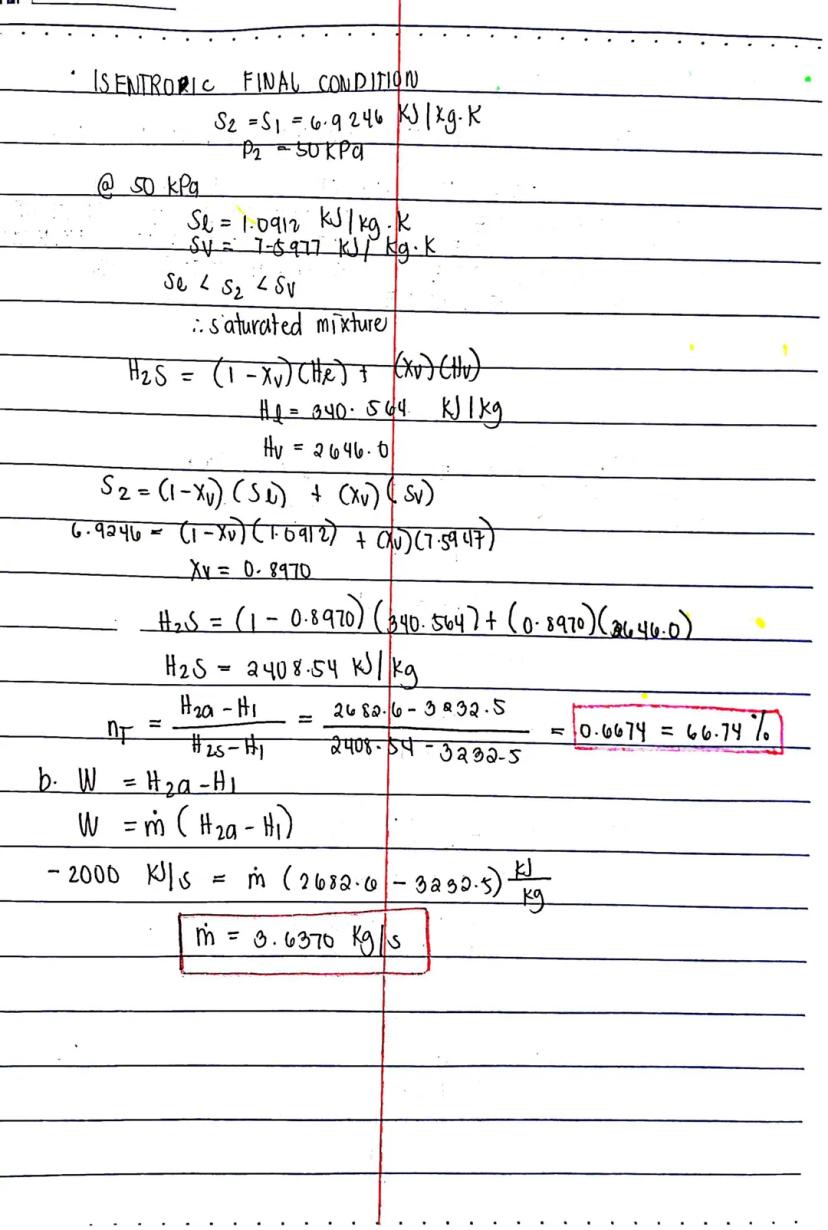 • ISENTROPIC FINAL CONDITION
S2 = S1 = 6.9246 KJ/kg.K
P2 = 50 KPa
@ 50 kPa
Sl = 1.0912 KJ/kg.K
SV = 7.5977 KJ/kg.K
Sl < S2 < SV
∴ saturated mixture
H2S = (1 - XV)(Hl) + (XV)(HV)
Hl = 340.564 KJ/kg
HV = 2646.0
S2 = (1-XV)(Sl) + (XV)(SV)
6.9246 = (1-XV)(1.0912) + (XV)(7.5947)
XV = 0.8970
H2S = (1 - 0.8970)(340.564) + (0.8970)(2646.0)
H2S = 2408.54 KJ/kg
nT = H2a - H1 / H2s - H1 = 2682.6 - 3232.5 / 2408.54 - 3232.5 = 0.6674 = 66.74 %
b. W = H2a - H1
W = ṁ (H2a - H1)
- 2000 KJ/s = ṁ (2682.6 - 3232.5) KJ/kg
ṁ = 3.6370 Kg/s